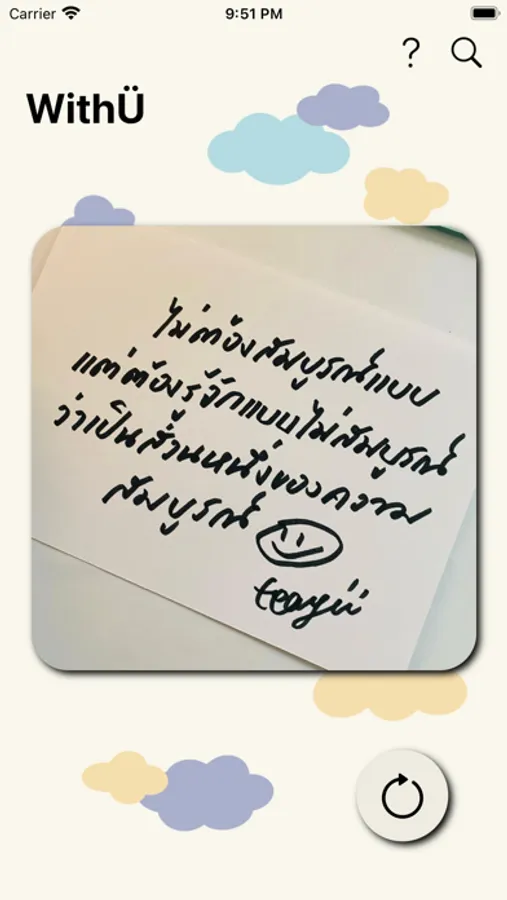 Carrier 9:51 PM
WithÜ
ไม่ต้องสมบูรณ์แบบ
แต่ต้องรู้จักแบบไม่สมบูรณ์
ว่าเป็นส่วนหนึ่งของความ
สมบูรณ์
teayii